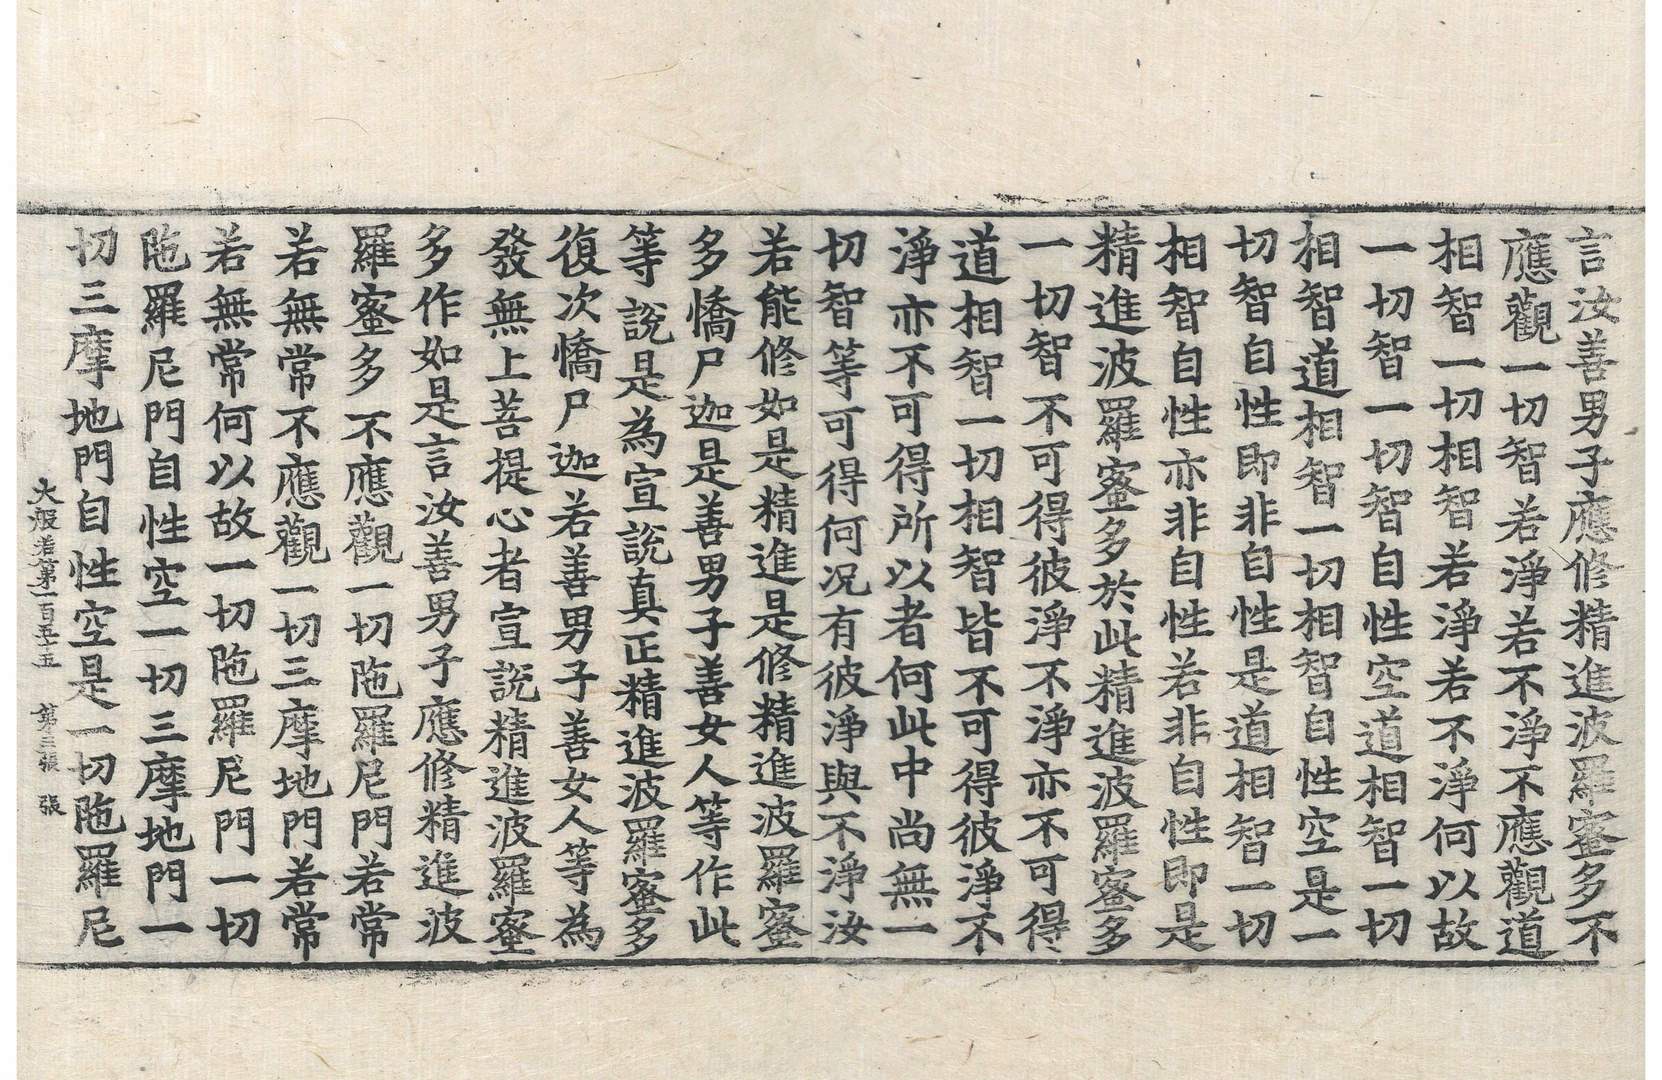 言汝善男子應修精進波羅蜜多不
應觀一切智若淨若不淨不應觀道
相智一切相智若淨若不淨何以故
一切智一切智自性空道相智一切
相智道相智一切相智自性空是一
切智自性即非自性是道相智一切
相智自性亦非自性若非自性即是
精進波羅蜜多於此精進波羅蜜多
一切智不可得彼淨不淨亦不可得
道相智一切相智皆不可得彼淨不
淨亦不可得所以者何此中尚無一
切智等可得何況有彼淨與不淨汝
若能修如是精進是修精進波羅蜜
多憍尸迦是善男子善女人等作此
等說是為宣說真正精進波羅蜜多
復次憍尸迦若善男子善女人等為
發無上菩提心者宣說精進波羅蜜
多作如是言汝善男子應修精進波
羅蜜多不應觀一切陁羅尼門若常
若無常不應觀一切三摩地門若常
若無常何以故一切陁羅尼門一切
陁羅尼門自性空一切三摩地門一
切三摩地門自性空是一切陁羅尼
大般若第一百五十五 第三張 張